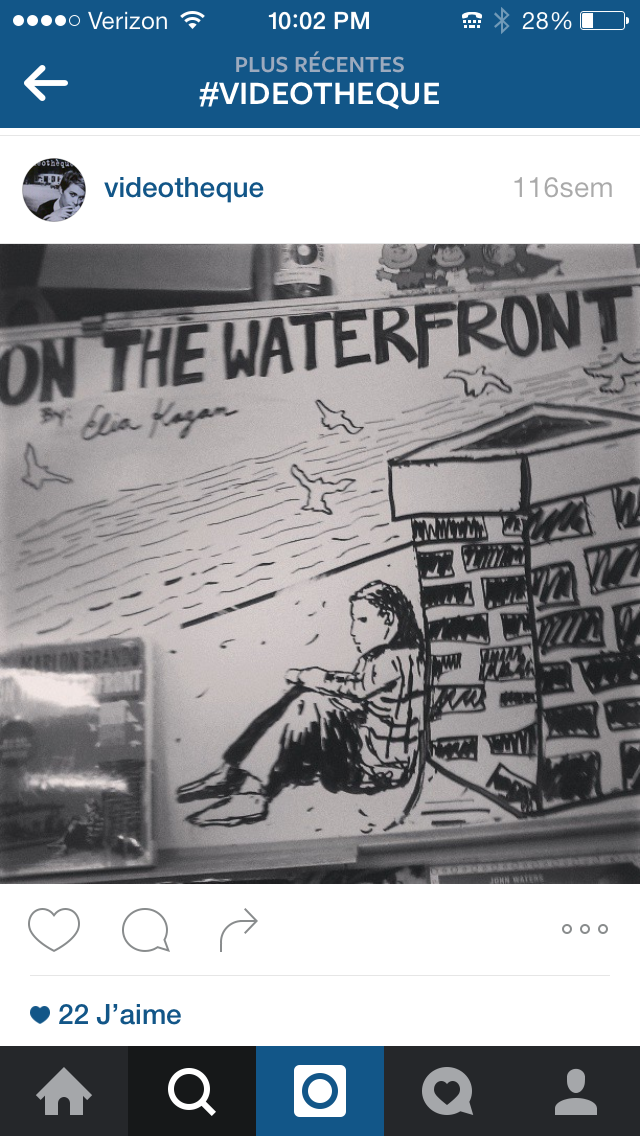 Verizon 10:02 PM 28%
PLUS RÉCENTES
#VIDEOTHEQUE
videotheque 116sem
ON THE WATERFRONT
By: Elia Kazan
MARLON BRANDO
FRONT
JOHN WATERS
22 J'aime